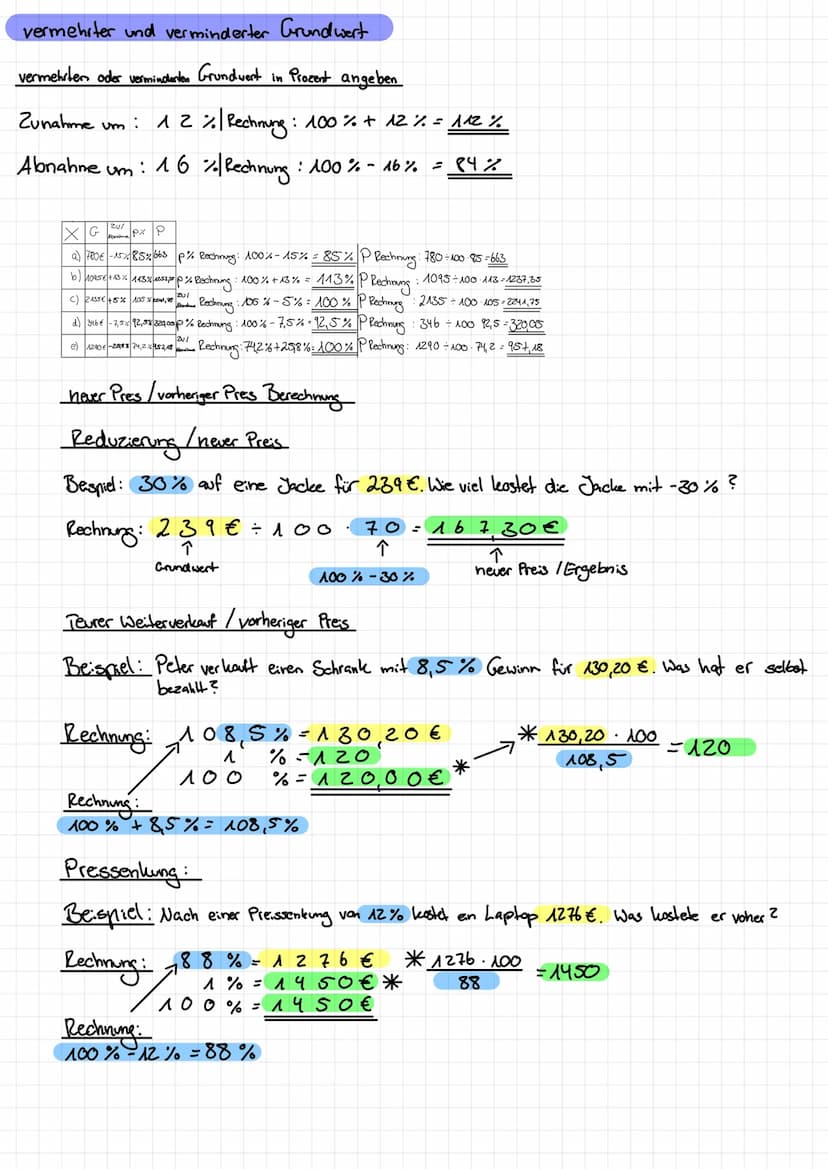 vermehrter und verminderter Grundwert
vermehrten oder verminderten Grundwert in Prozent angeben
Zunahme um : 1 2 % | Rechnung : 100 % + 12 % = 112 %
Abnahme um : 16 % | Rechnung : 100 % - 16 % = 84 %
X G Zu/ Abnahme p% P
a) 780€ -15% 85% 663 p% Rechnung: 100% - 15% = 85% P Rechnung: 780 ÷ 100 · 85 = 663
b) 1095€ +13% 113% 1237,35 p% Rechnung: 100% + 13% = 113% P Rechnung: 1095 ÷ 100 · 113 = 1237,35
c) 2135€ +5% 105% 2241,75 Zu/ Abnahme Rechnung: 105% - 5% = 100% P Rechnung: 2135 ÷ 100 · 105 = 2241,75
d) 346€ -7,5% 92,5% 320,05 p% Rechnung: 100% - 7,5% = 92,5% P Rechnung: 346 ÷ 100 92,5 = 320,05
e) 1290€ -25,8% 74,2% 957,18 Zu/ Abnahme Rechnung: 74,2% + 25,8% = 100% P Rechnung: 1290 ÷ 100 · 74,2 = 957,18
neuer Pres / vorheriger Pres Berechnung
Reduzierung / neuer Preis
Bespiel: 30% auf eine Jacke für 239€. Wie viel kostet die Jacke mit -30% ?
Rechnung: 239€ ÷ 100 · 70 = 167,30€
↑ ↑ ↑
Grundwert 100% - 30% neuer Preis / Ergebnis
Teurer Weiterverkauf / vorheriger Preis
Beispiel: Peter verkauft einen Schrank mit 8,5% Gewinn für 130,20 €. Was hat er selbst
bezahlt?
Rechnung: 108,5% = 130,20€ * 130,20 · 100 = 120
1 % = 120 108,5
100 % = 120,00€ *
Rechnung:
100% + 8,5% = 108,5%
Pressenkung:
Beispiel: Nach einer Pressenkung von 12% kostet en Laptop 1276€. Was kostete er voher?
Rechnung: 88 % = 1276 € * 1276 · 100 = 1450
1 % = 1450€ * 88
100 % = 1450€
Rechnung:
100% - 12% = 88%